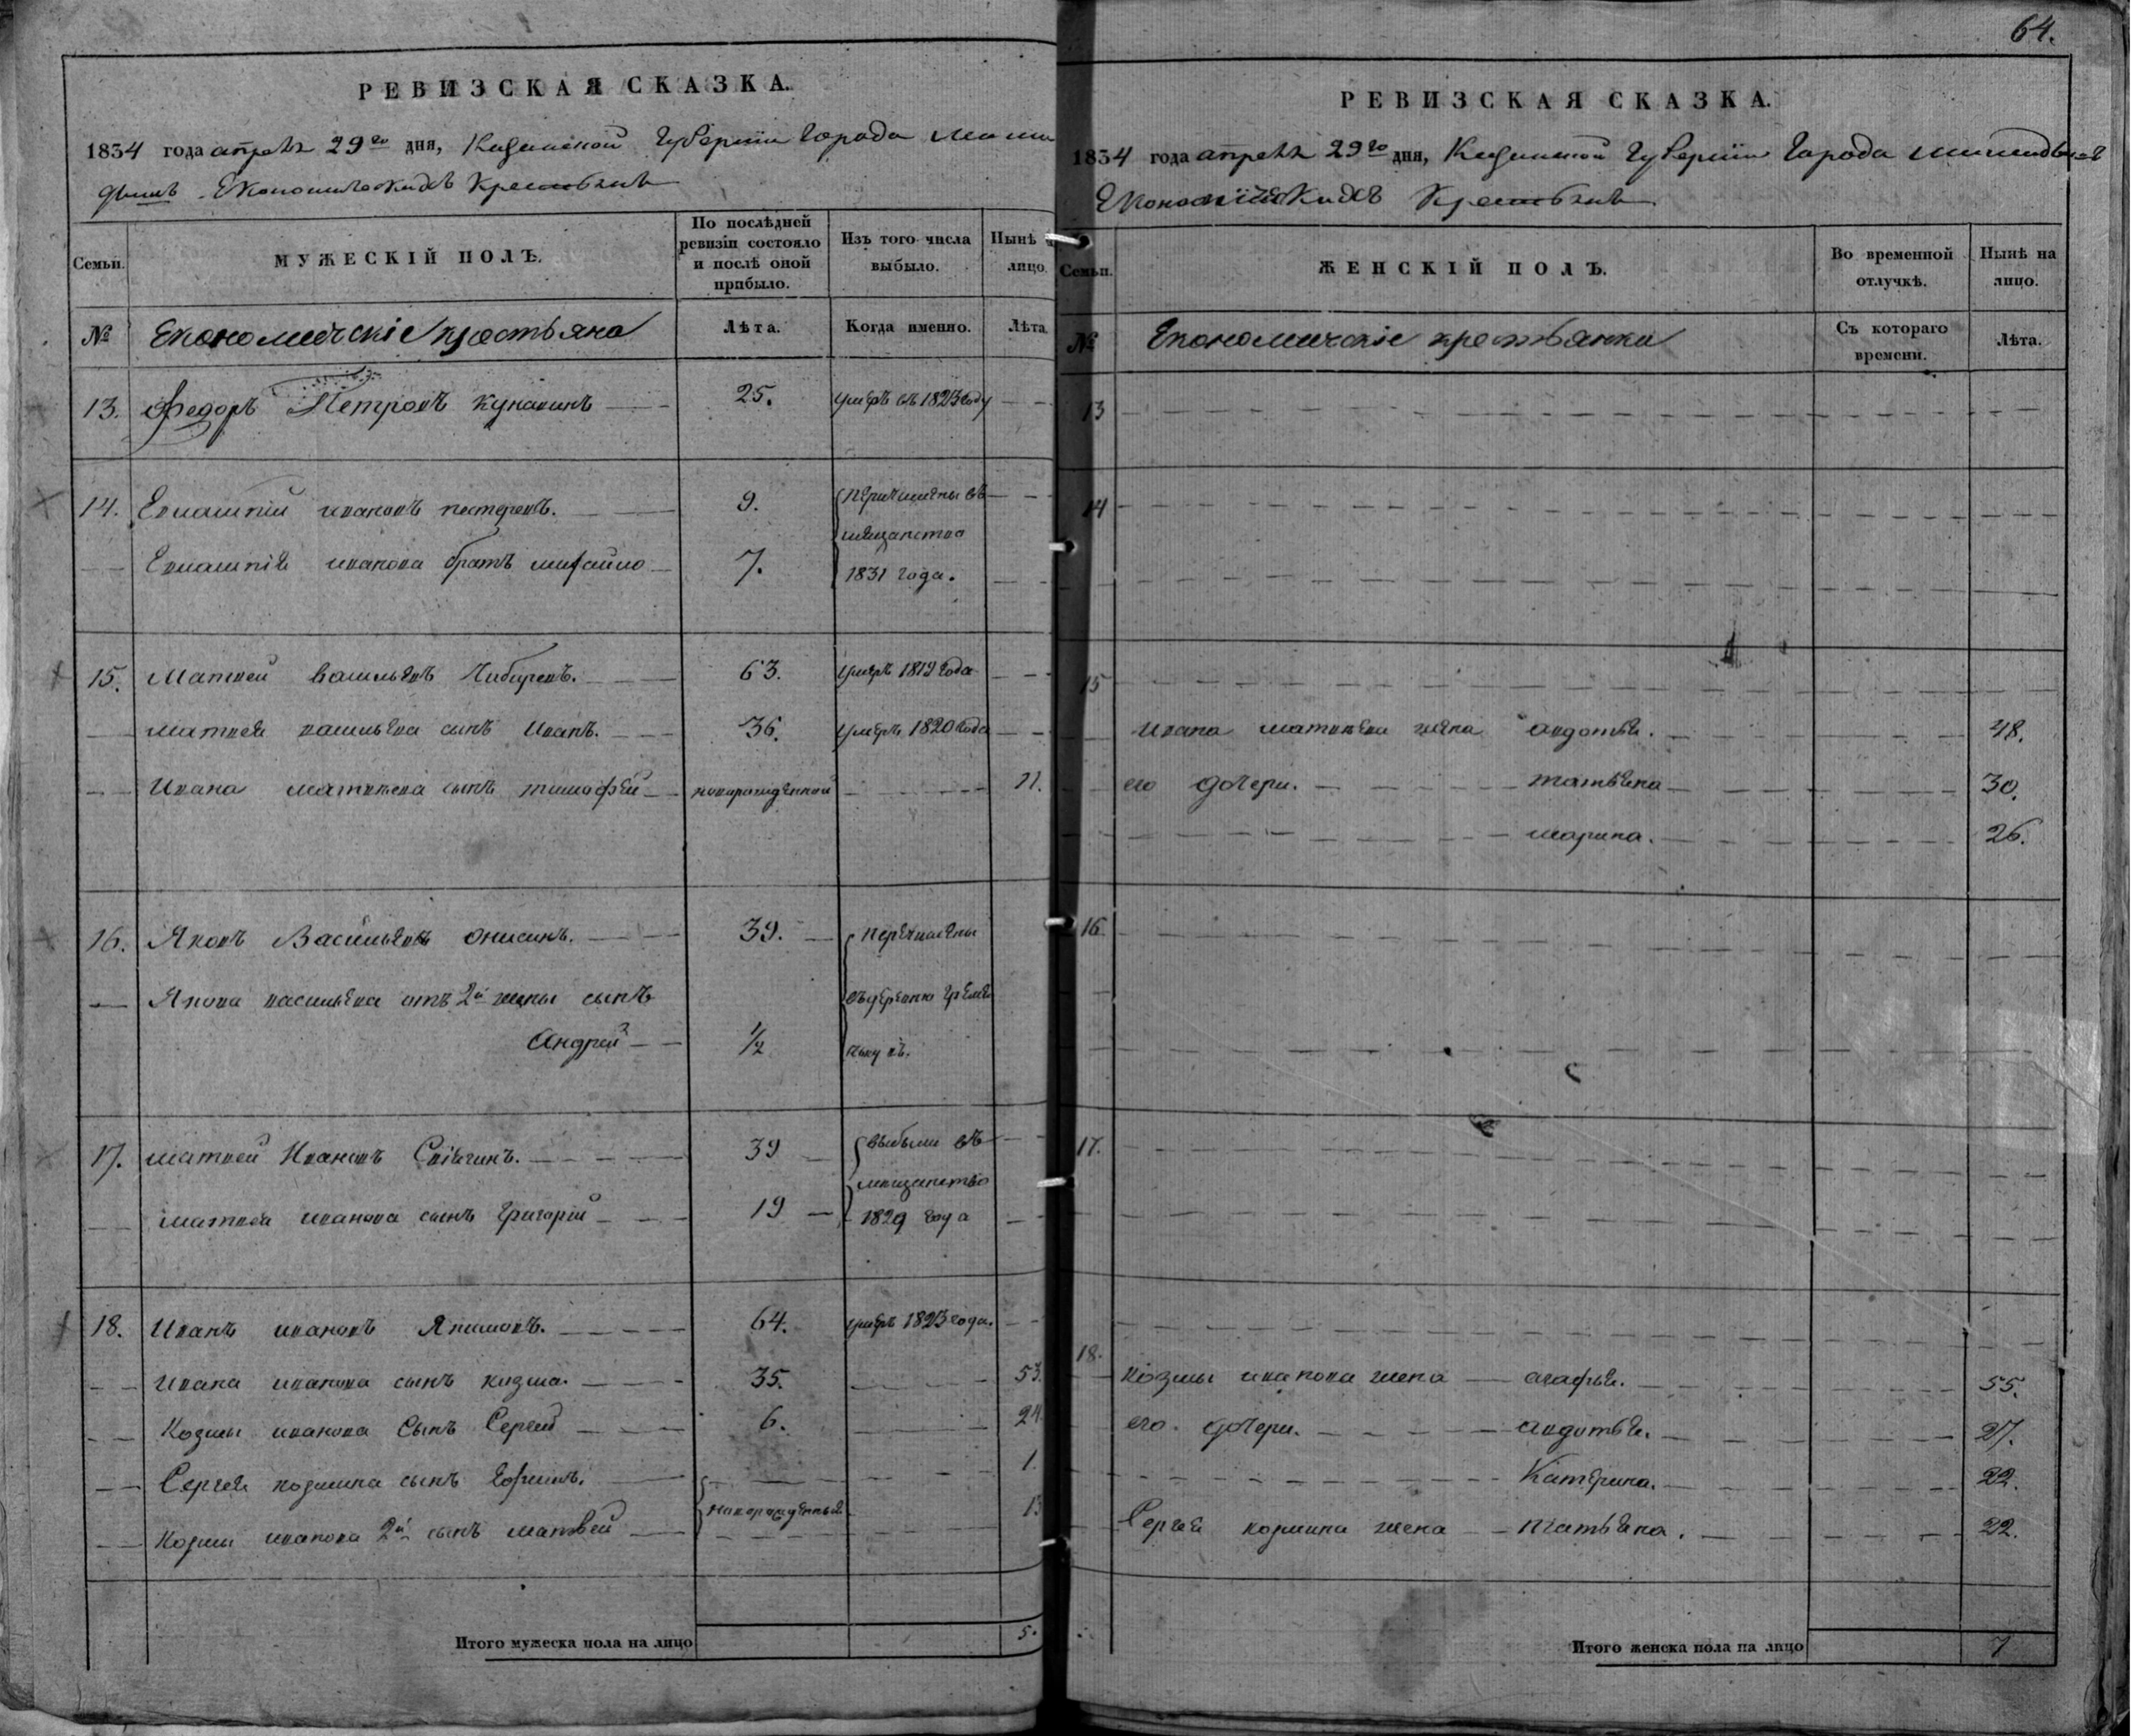 64.
РЕВИЗСКАЯ СКАЗКА.
1834 года апреля 29го дня, Казанской Губернии Города Мама
дышъ Економическихъ Крестьянъ
Семьи.
МУЖЕСКІЙ ПОЛЪ.
По послѣдней ревизіи состояло и послѣ оной прибыло.
Изъ того числа выбыло.
Нынѣ на лицо.
№
Економическіе крестьяна
Лѣта.
Когда именно.
Лѣта.
13. Федоръ Петровъ Кунакинъ 25. умеръ въ 1823 году
14. Евлампий ивановъ 9. перичислены въ
мещанство
Евлампия иванова братъ михайло 7. 1831 года.
15. Матвей васильевъ Чибиревъ. 63. умеръ 1819 года
матвея васильева сынъ Иванъ. 36. умеръ 1820 года
Ивана матвеева сынъ тимофей новорожденной 11.
16. Яковъ Васильевъ онисинъ. 39. перечислены
Якова васильева отъ 2й жены сынъ
андрей 1/2
17. матвей Ивановъ 39 выбыли въ
мещанство
матвея иванова сынъ григорий 19 1829 года
18. Иванъ ивановъ Якимовъ. 64. умеръ 1823 года.
Ивана иванова сынъ козма. 35. 53.
Козмы иванова Сынъ Сергей 6. 24.
Сергея козмина сынъ ефимъ. 1.
новорожденныя
Козмы иванова 2й сынъ матвей 13
Итого мужеска пола на лицо 5.
РЕВИЗСКАЯ СКАЗКА.
1834 года апреля 29го дня, Казанской Губернии Города
Економическихъ Крестьянъ
Семьи.
ЖЕНСКІЙ ПОЛЪ.
Во временной отлучкѣ.
Нынѣ на лицо.
№
Економическіе крестьянки
Съ котораго времени.
Лѣта.
13
14
15
Ивана матвеева жена авдотья. 48.
его дочери. татьяна 30.
марина. 26.
16.
17.
18.
козмы иванова жена агафья. 55.
его дочери. авдотья. 27.
Катерина. 22.
Сергея козмина жена татьяна. 22.
Итого женска пола на лицо 7